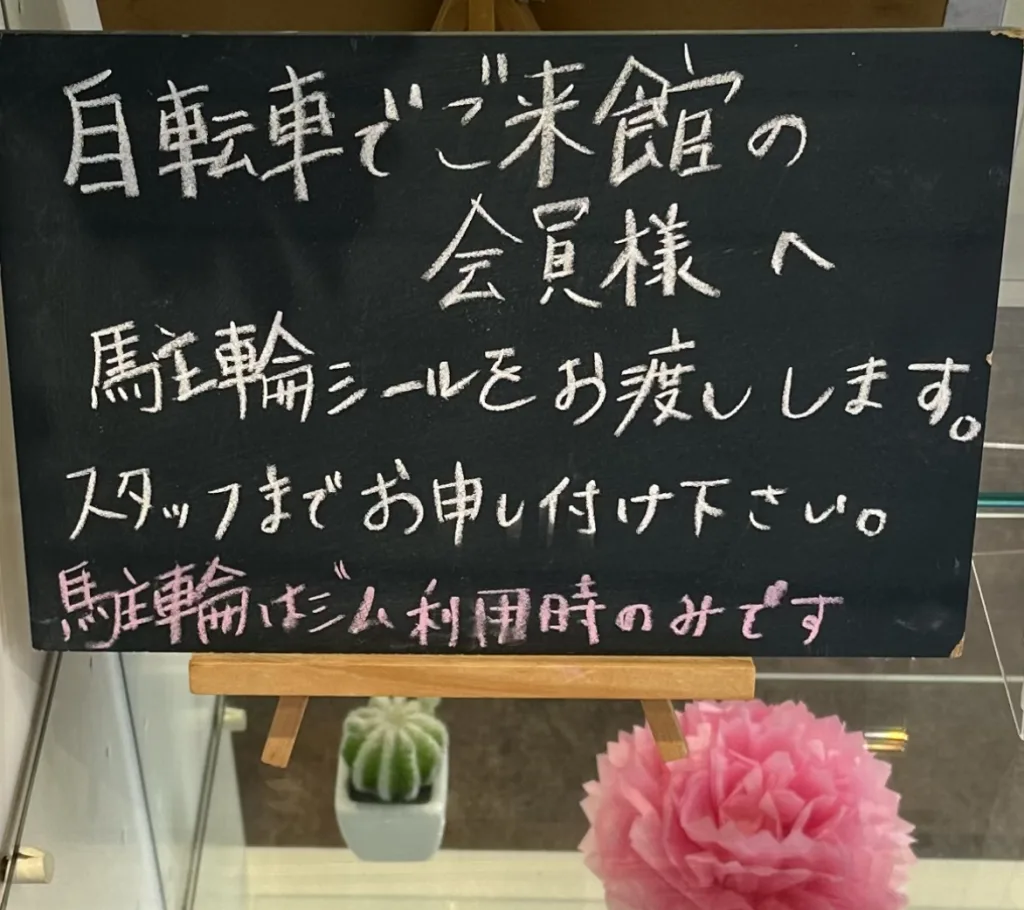 自転車でご来館の
会員様へ
駐輪シールをお渡しします。
スタッフまでお申し付け下さい。
駐輪はジム利用時のみです